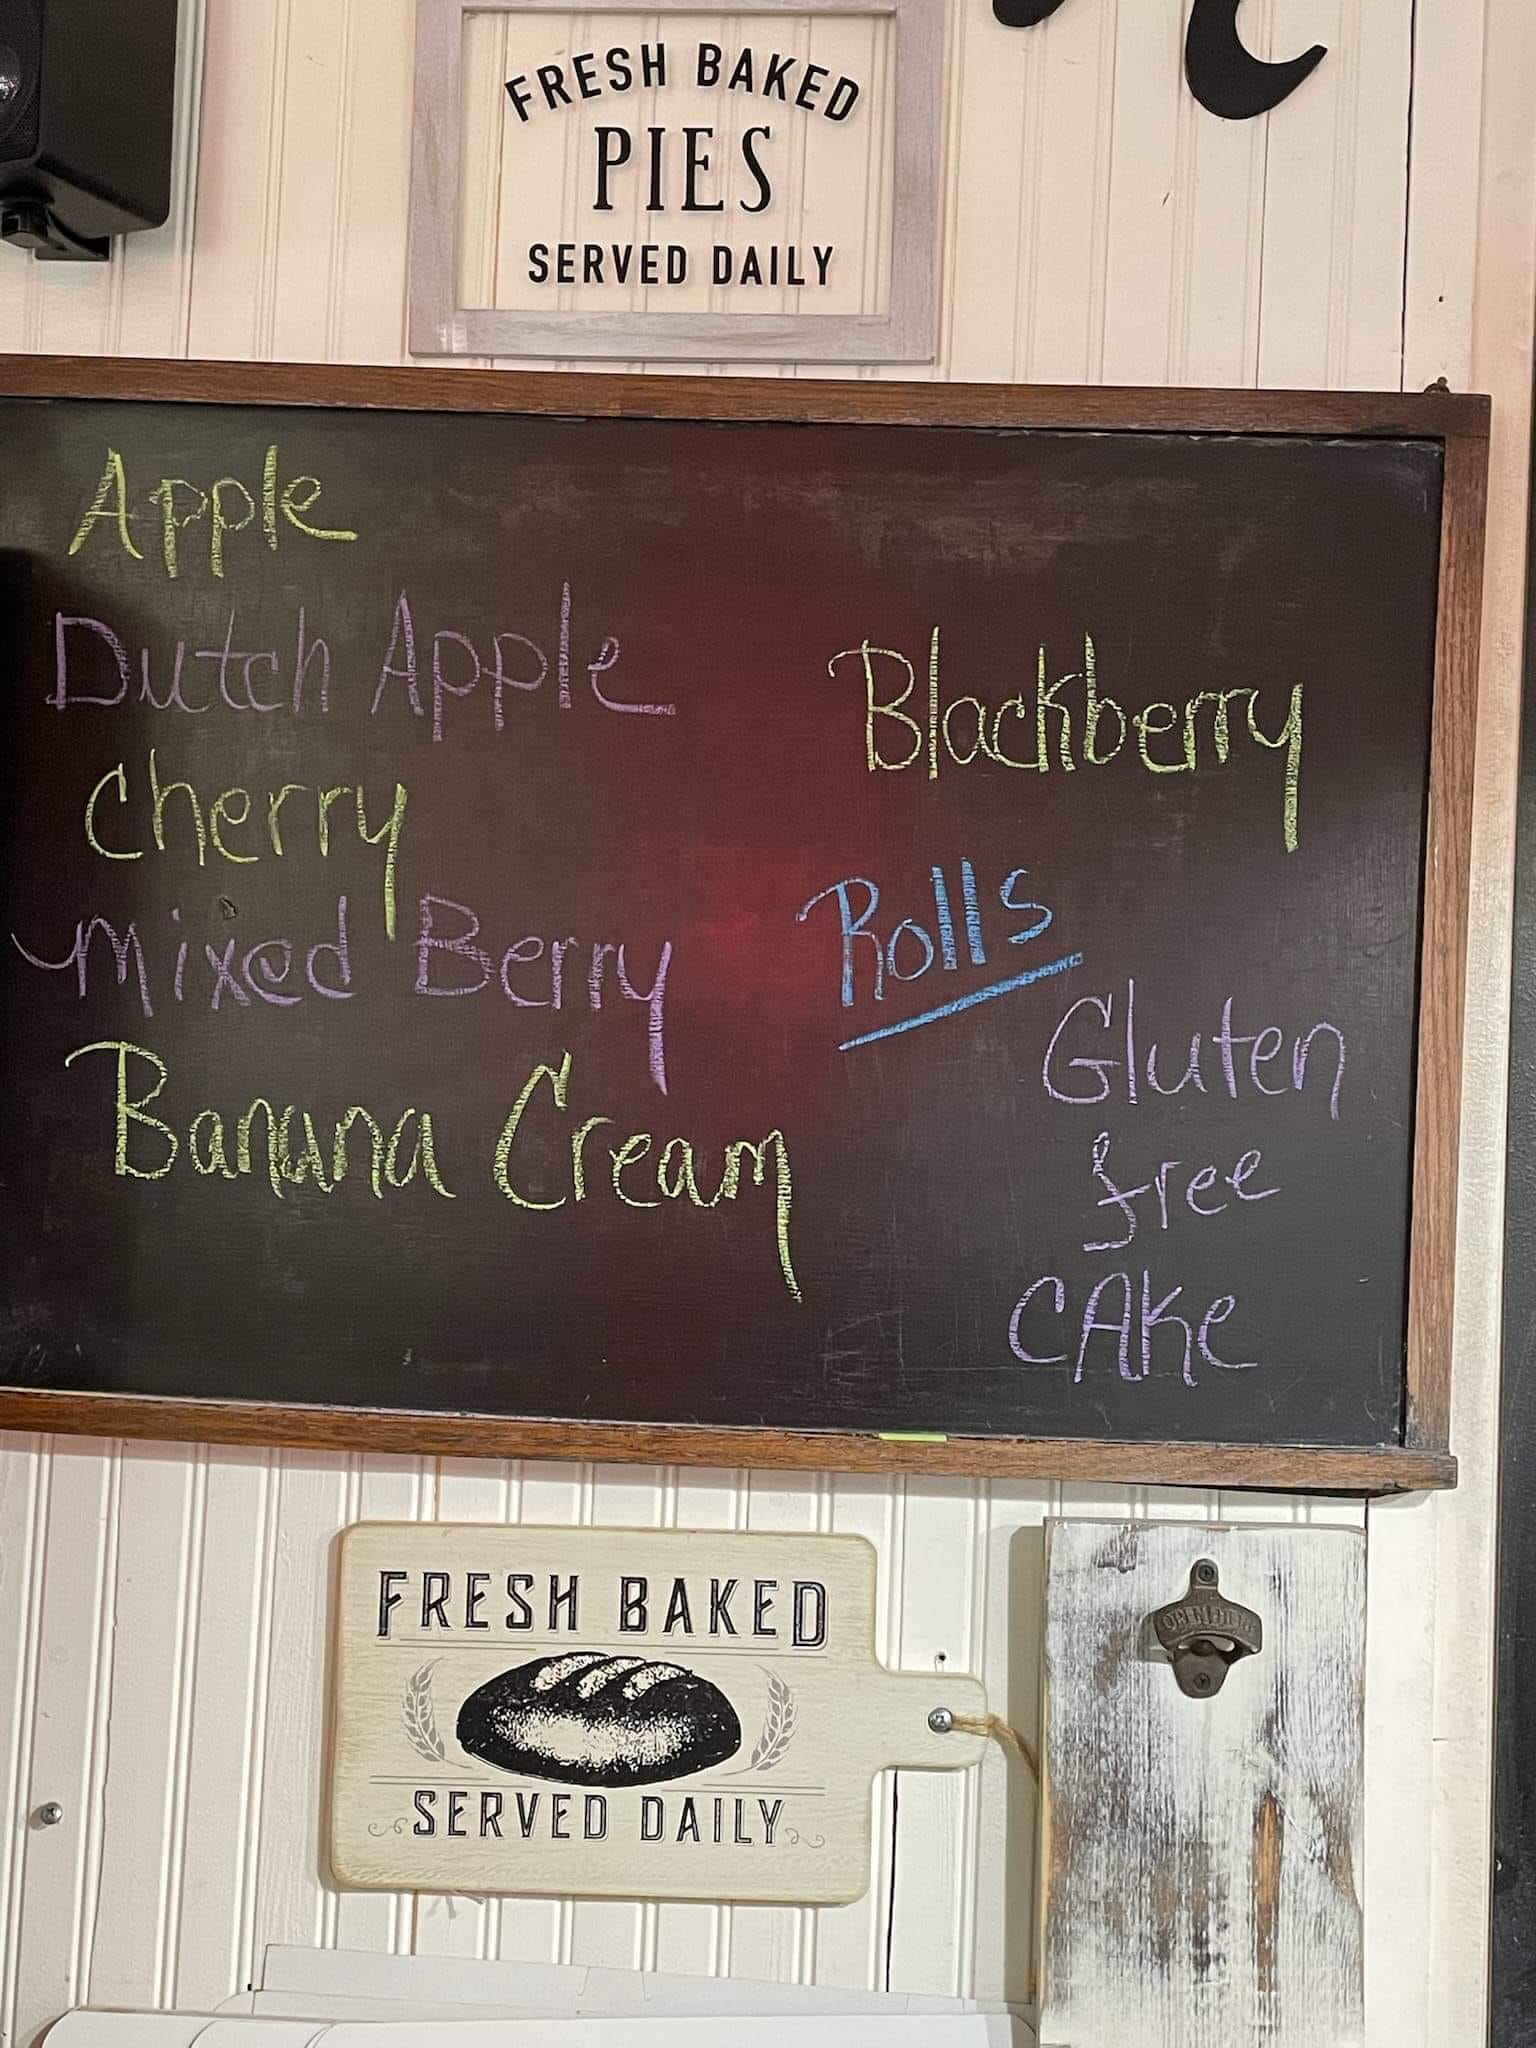 FRESH BAKED
PIES
SERVED DAILY
Apple
Dutch Apple
Cherry
mixed Berry
Banana Cream
Blackberry
Rolls
Gluten
free
CAke
FRESH BAKED
SERVED DAILY
OPEN HERE